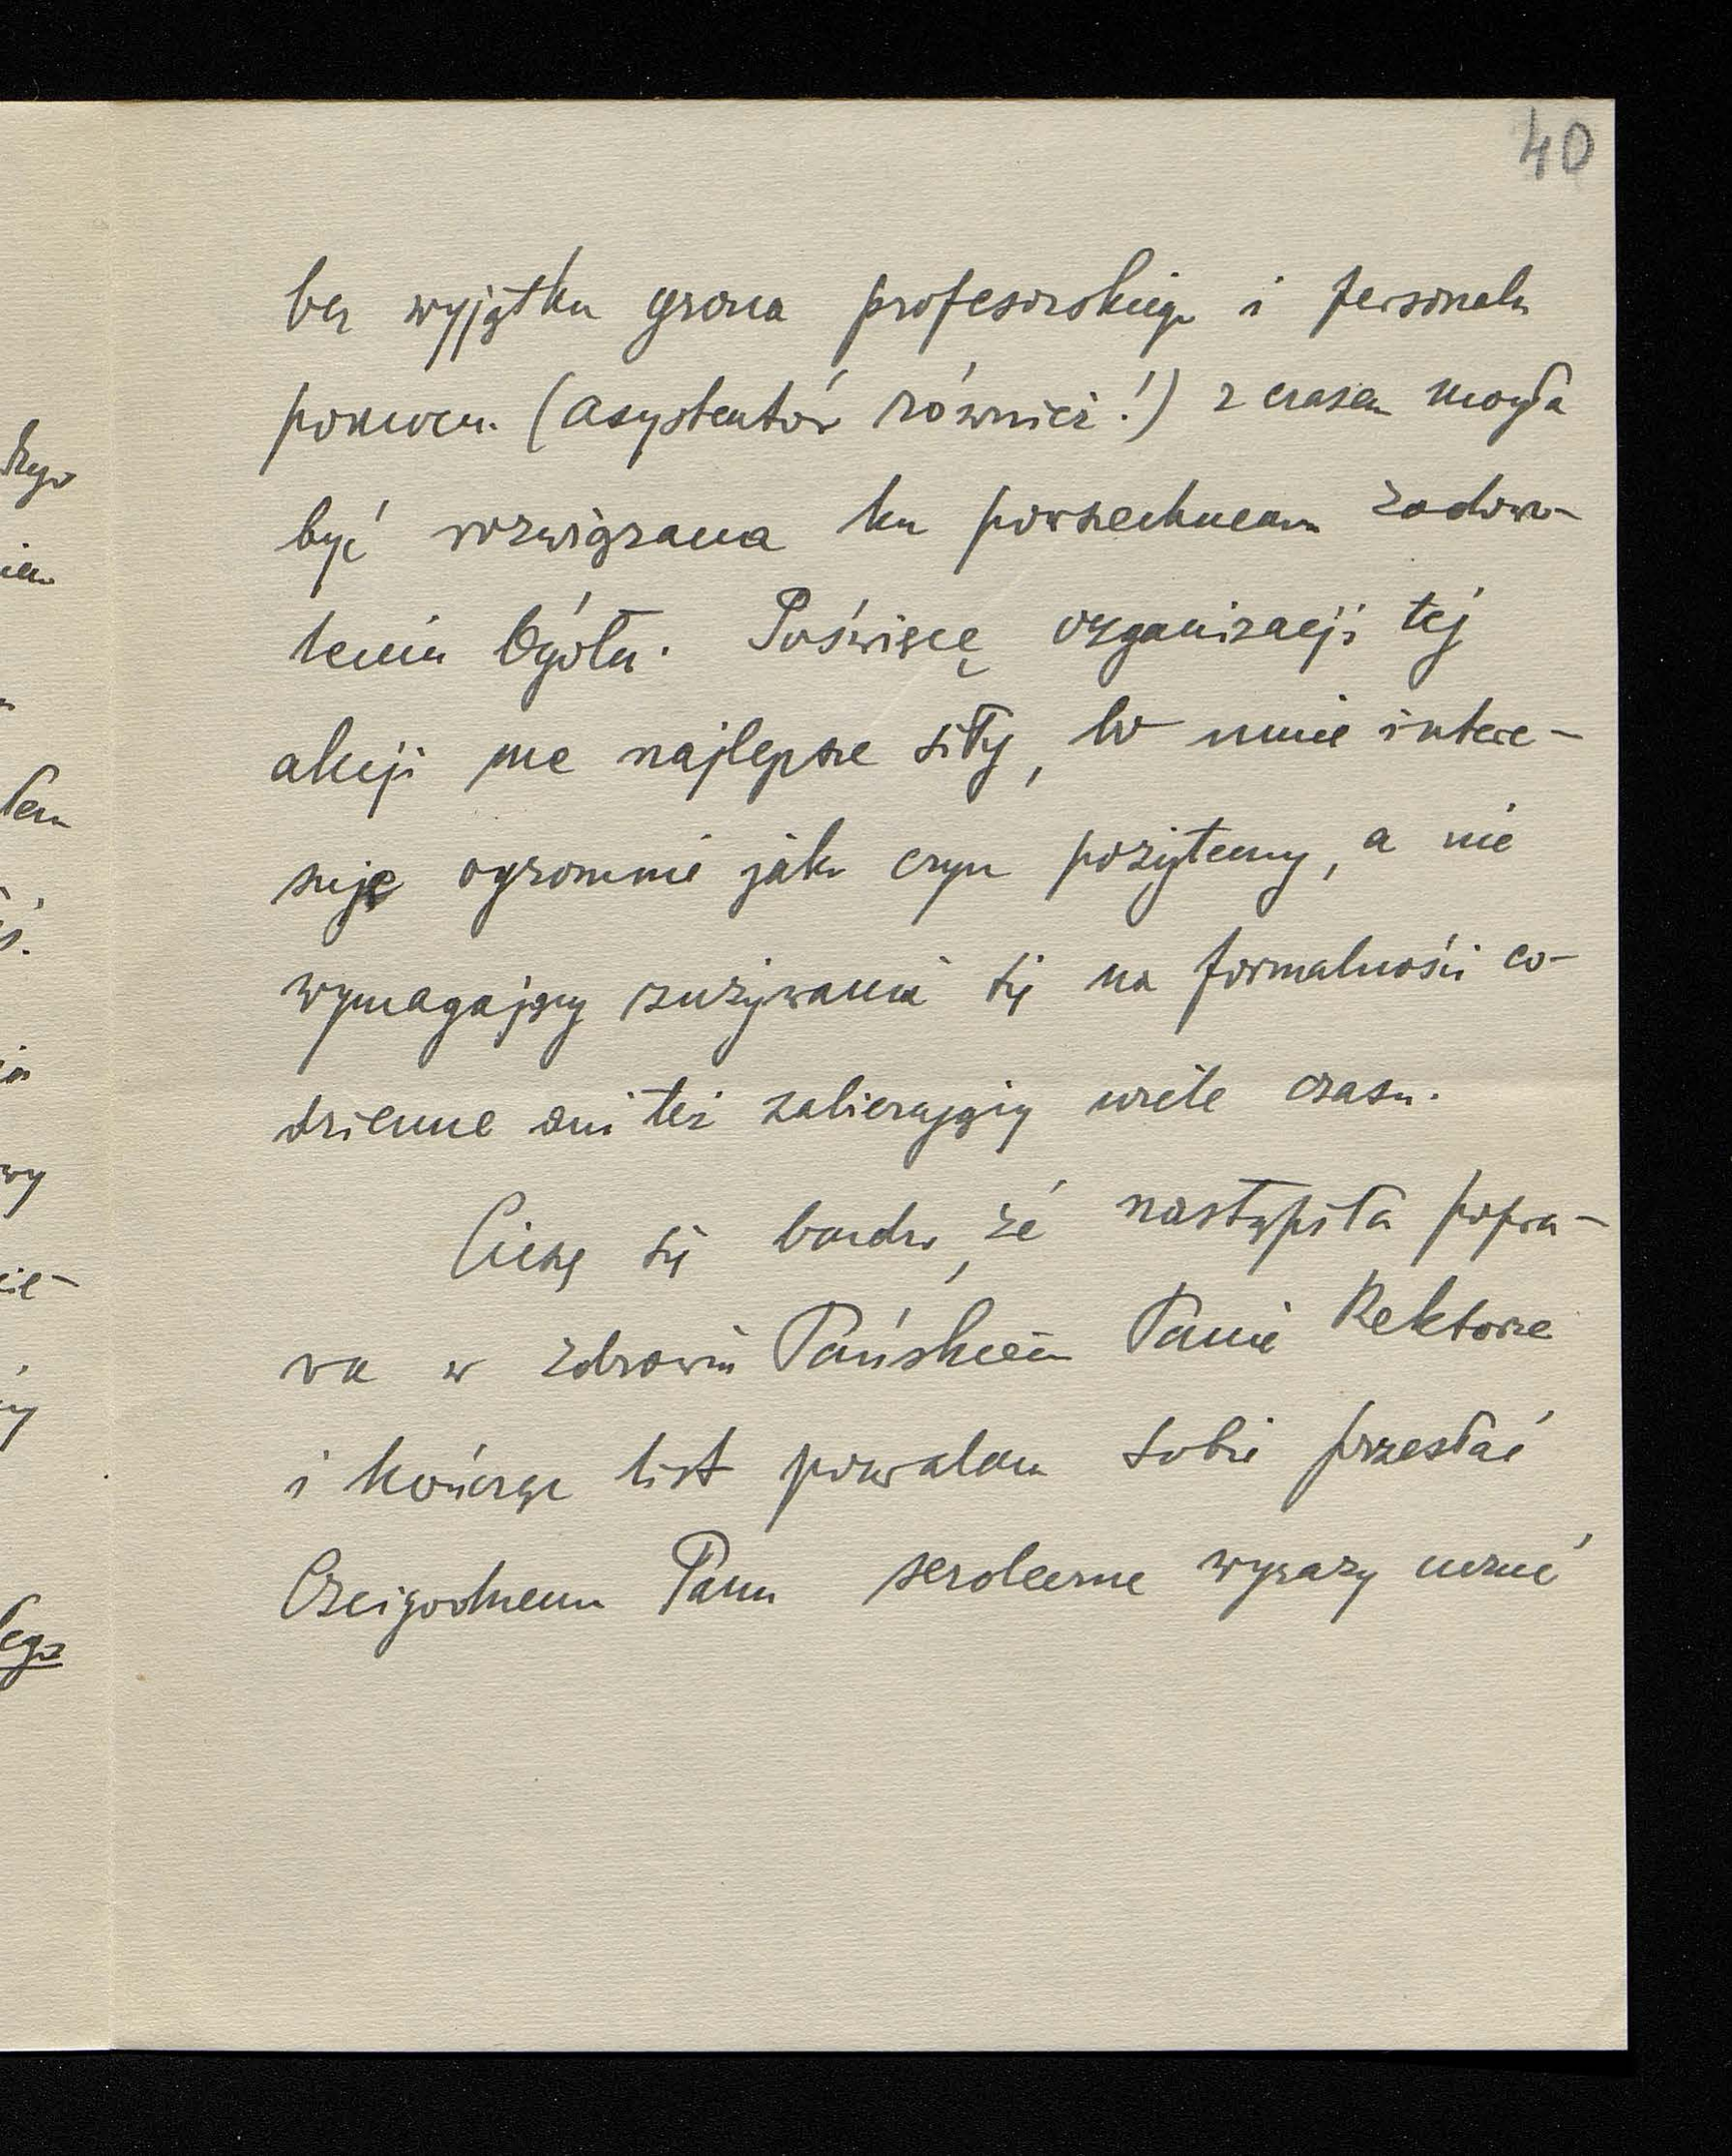 40
bez wyjątku grona profesorskiego i personelu
pomocn. (asystentów również!) z czasem mogła
być rozwiązana ku powszechnem zadowo-
leniu Ogółu. Poświęcę organizacji tej
akcji me najlepsze siły, bo mnie intere-
suje ogromnie jako czyn pożyteczny, a nie
wymagający zużywania się na formalności co-
dzienne ani też zabierający wiele czasu.
Cieszę się bardzo, że nastąpiła popra-
wa w zdrowiu Pańskiem Panie Rektorze
i kończąc list pozwalam sobie przesłać
Czcigodnemu Panu serdeczne wyrazy uczuć